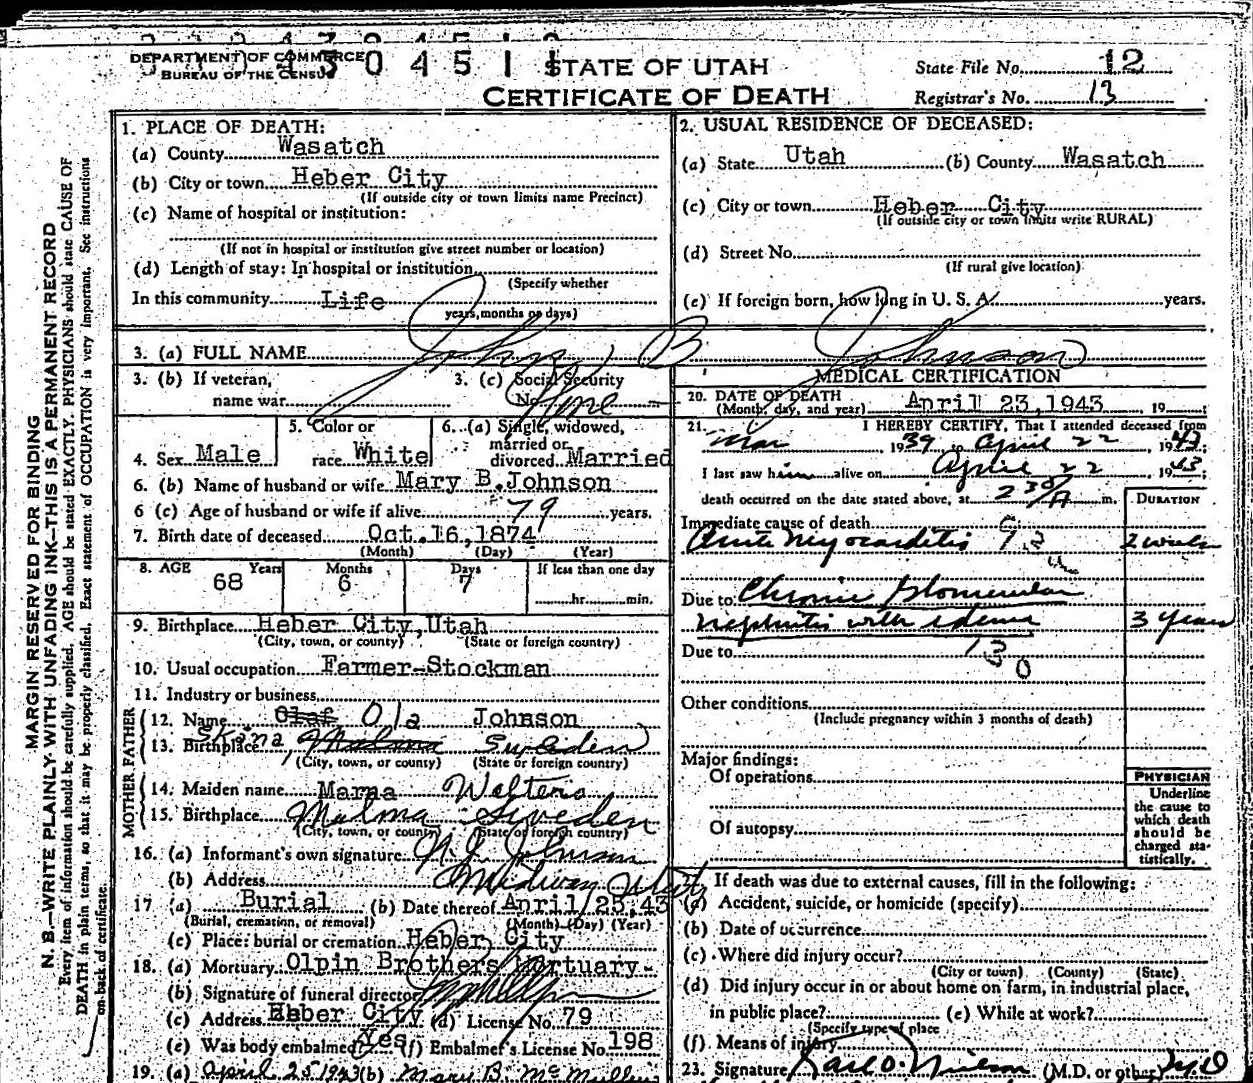 DEPARTMENT OF COMMERCE
BUREAU OF THE CENSUS
STATE OF UTAH
CERTIFICATE OF DEATH
State File No. 12
Registrar's No. 13
MARGIN RESERVED FOR BINDING
N. B.—WRITE PLAINLY WITH UNFADING INK—THIS IS A PERMANENT RECORD
Every item of information should be carefully supplied. AGE should be stated EXACTLY. PHYSICIANS should state CAUSE OF
DEATH in plain terms, so that it may be properly classified. Exact statement of OCCUPATION is very important. See instructions
on back of certificate.
1. PLACE OF DEATH:
(a) County Wasatch
(b) City or town Heber City
(If outside city or town limits name Precinct)
(c) Name of hospital or institution:
(If not in hospital or institution give street number or location)
(d) Length of stay: In hospital or institution
(Specify whether
In this community Life
years, months or days)
2. USUAL RESIDENCE OF DECEASED:
(a) State Utah (b) County Wasatch
(c) City or town Heber City
(If outside city or town limits write RURAL)
(d) Street No.
(If rural give location)
(e) If foreign born, how long in U. S. A. years.
3. (a) FULL NAME John B Johnson
3. (b) If veteran,
name war
3. (c) Social Security
No. None
4. Sex Male
5. Color or
race White
6. (a) Single, widowed,
married or
divorced Married
6. (b) Name of husband or wife Mary B. Johnson
6 (c) Age of husband or wife if alive 79 years.
7. Birth date of deceased Oct. 16, 1874
(Month) (Day) (Year)
8. AGE Years Months Days If less than one day
68 6 7 hr. min.
9. Birthplace Heber City, Utah
(City, town, or county) (State or foreign country)
10. Usual occupation Farmer-Stockman
11. Industry or business
FATHER
12. Name Olaf Ola Johnson
13. Birthplace Skåna, Malmo Sweden
(City, town, or county) (State or foreign country)
MOTHER
14. Maiden name Marna Walters
15. Birthplace Malma Sweden
(City, town, or county) (State or foreign country)
16. (a) Informant's own signature Johnson
(b) Address Midway Utah
17 (a) Burial (b) Date thereof April/25, 43
(Burial, cremation, or removal) (Month) (Day) (Year)
(c) Place: burial or cremation Heber City
18. (a) Mortuary Olpin Brothers Mortuary-
(b) Signature of funeral director
(c) Address Heber City (d) License No. 79
(e) Was body embalmed Yes (f) Embalmer's License No. 198
19. (a) April 25 1943 (b) Mary B. McMullin
MEDICAL CERTIFICATION
20. DATE OF DEATH
(Month, day, and year) April 23, 1943, 19
21. I HEREBY CERTIFY, That I attended deceased from
Mar 1939 to April 22 1943
I last saw him alive on April 22 1943
death occurred on the date stated above, at 2 30/A m.
DURATION
Immediate cause of death
Acute Myocarditis 2 weeks
Due to Chronic Glomerular
Nephritis with edema 3 Years
Due to 130
Other conditions
(Include pregnancy within 3 months of death)
Major findings:
Of operations
Of autopsy
PHYSICIAN
Underline
the cause to
which death
should be
charged sta-
tistically.
If death was due to external causes, fill in the following:
(a) Accident, suicide, or homicide (specify)
(b) Date of occurrence
(c) Where did injury occur?
(City or town) (County) (State)
(d) Did injury occur in or about home on farm, in industrial place,
in public place? (e) While at work?
(Specify type of place
(f) Means of injury
23. Signature Karl O. Nielson (M.D. or other) M.D